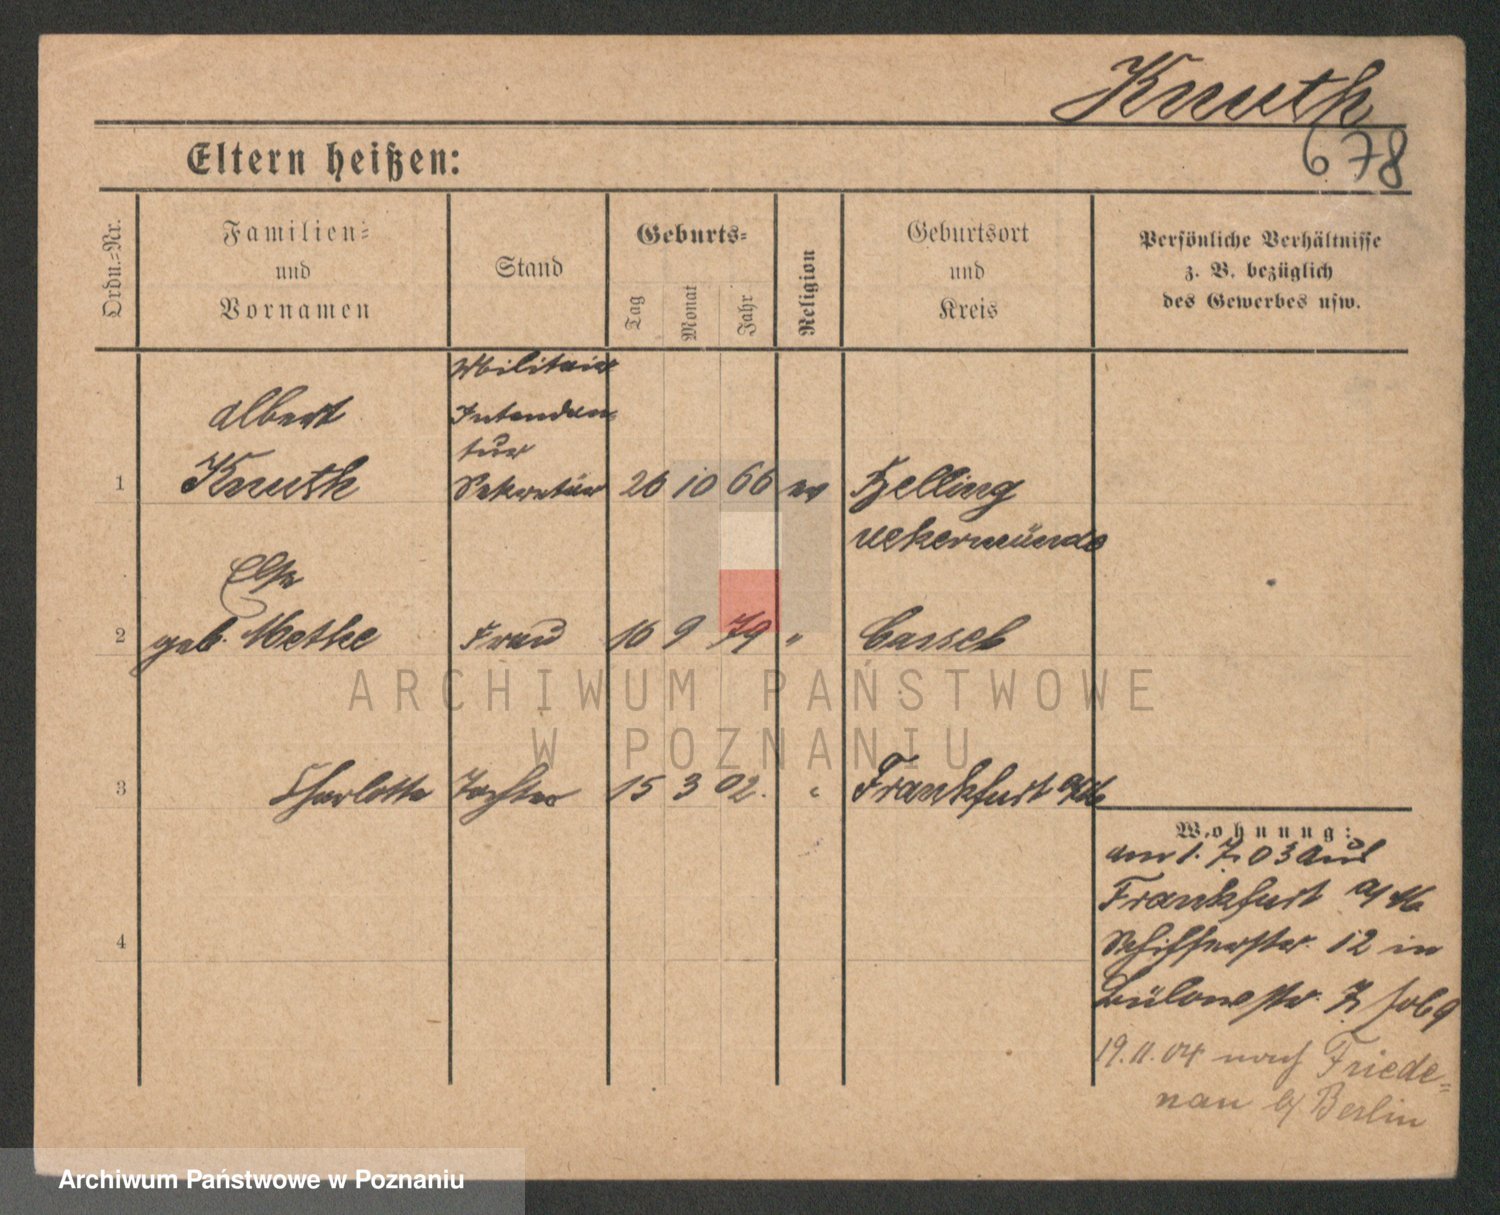 Knuth
678
Eltern heißen:
Ordn.-Nr.
Familien-
und
Vornamen
Stand
Geburts-
Tag
Monat
Jahr
Religion
Geburtsort
und
Kreis
Persönliche Verhältnisse
z. B. bezüglich
des Gewerbes usw.
Militair
Albert
Intendan-
tur
1 Knuth Sekretär 26 10 66 ev Zelling
Uekermünde
Else
2 geb. Methe Frau 16 9 79 " Cassel
ARCHIWUM PAŃSTWOWE
W POZNANIU
3 Charlotte Tochter 15 3 02. " Frankfurt a/M
Wohnung:
am 1. 7. 03 aus
Frankfurt a/M
Schifferstr. 12 in
4
Bülowstr. 7
19.11.04 nach Friede-
nau b/ Berlin
Archiwum Państwowe w Poznaniu